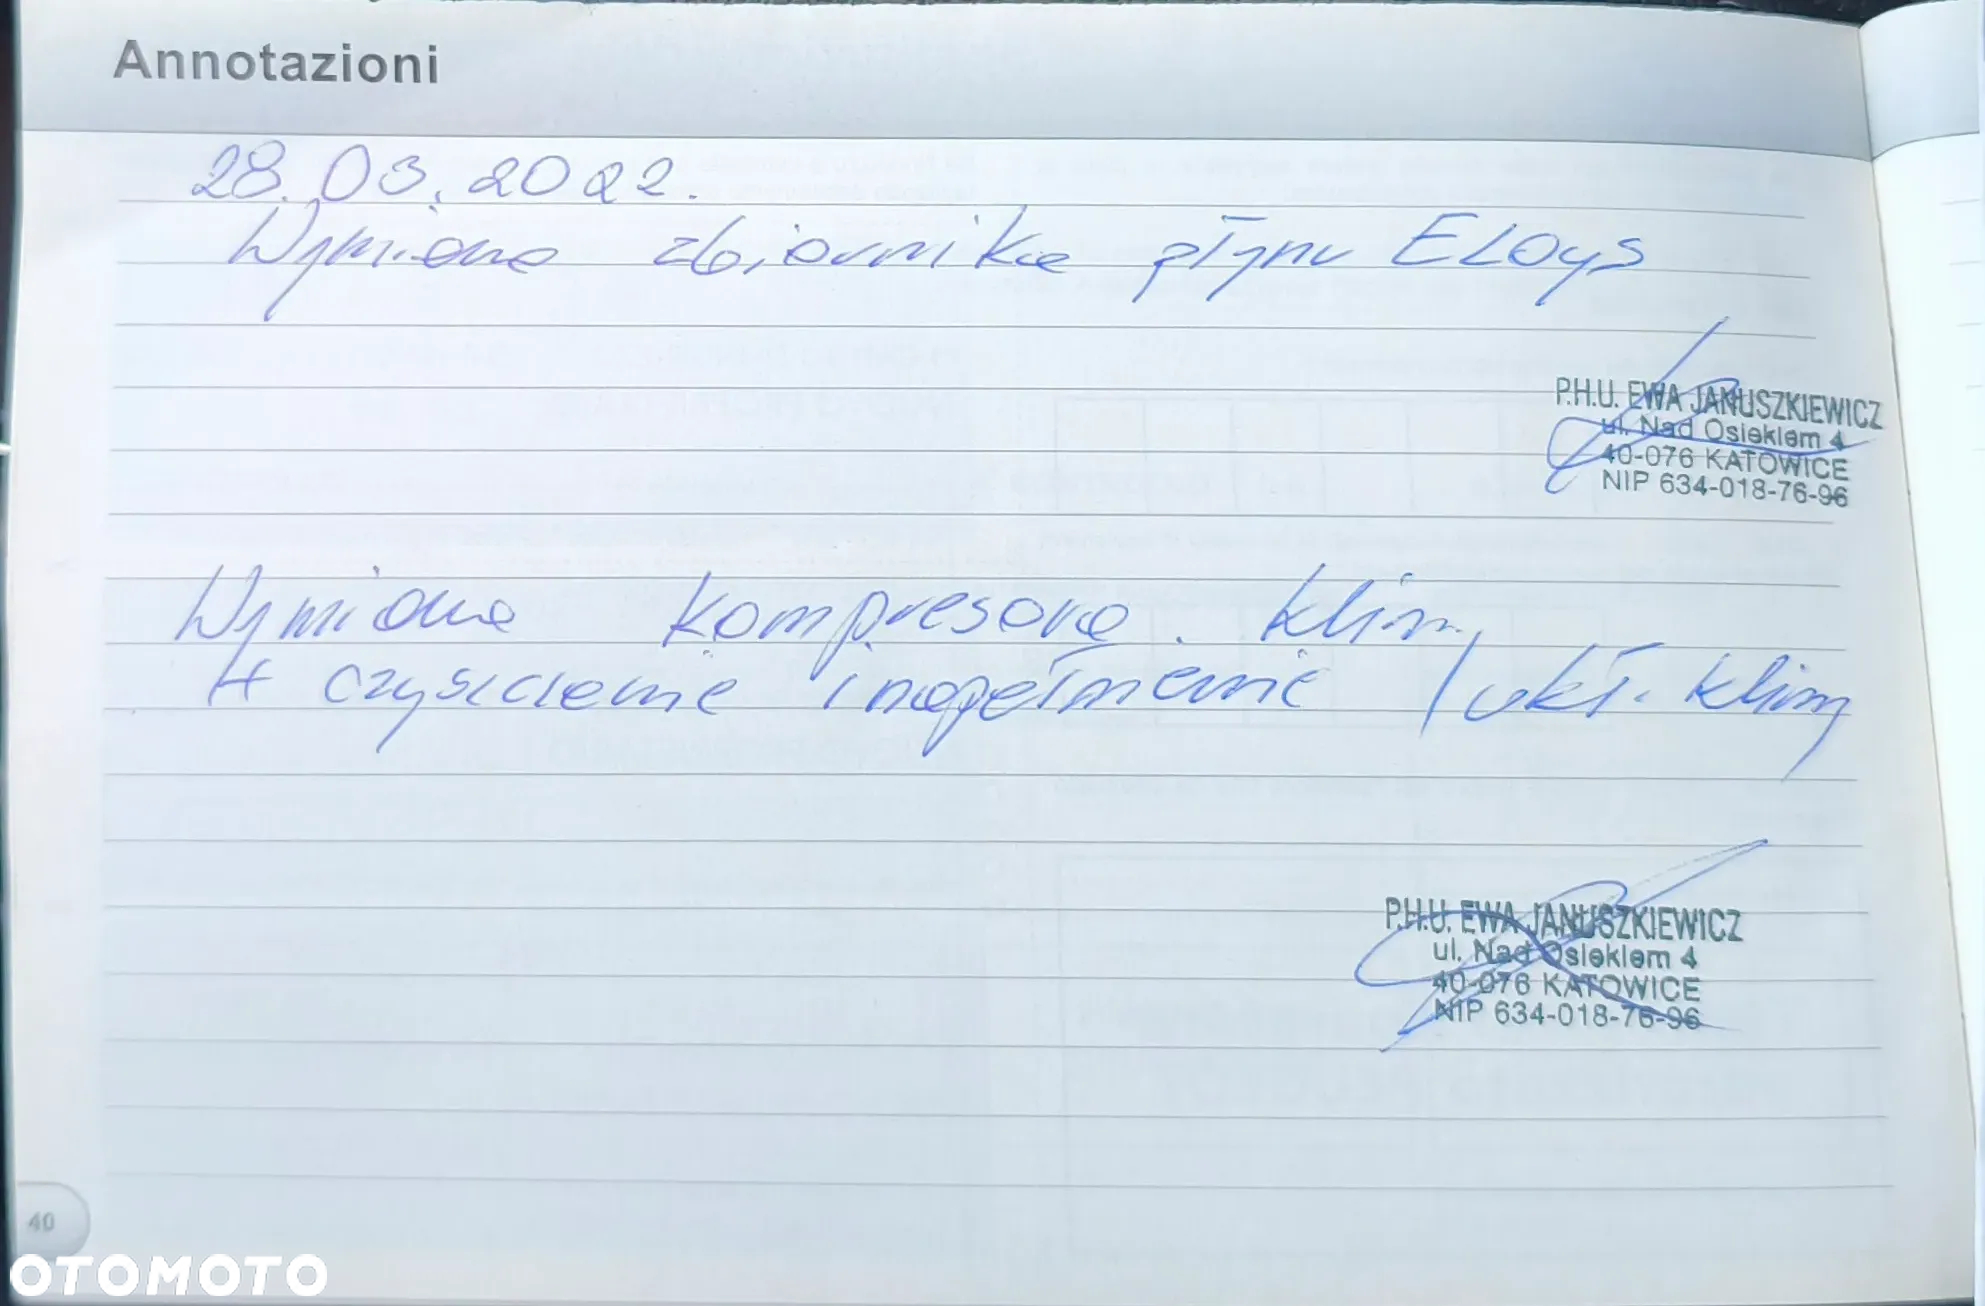 Annotazioni
28.03.2022.
Wymiana zbiornika płynu ELOys
P.H.U. EWA JANUSZKIEWICZ
ul. Nad Osiekiem 4
40-076 KATOWICE
NIP 634-018-76-96
Wymiana kompresora klim,
+ czyszczenie i napełnienie / ukł. klim
P.H.U. EWA JANUSZKIEWICZ
ul. Nad Osiekiem 4
40-076 KATOWICE
NIP 634-018-76-96
40
OTOMOTO